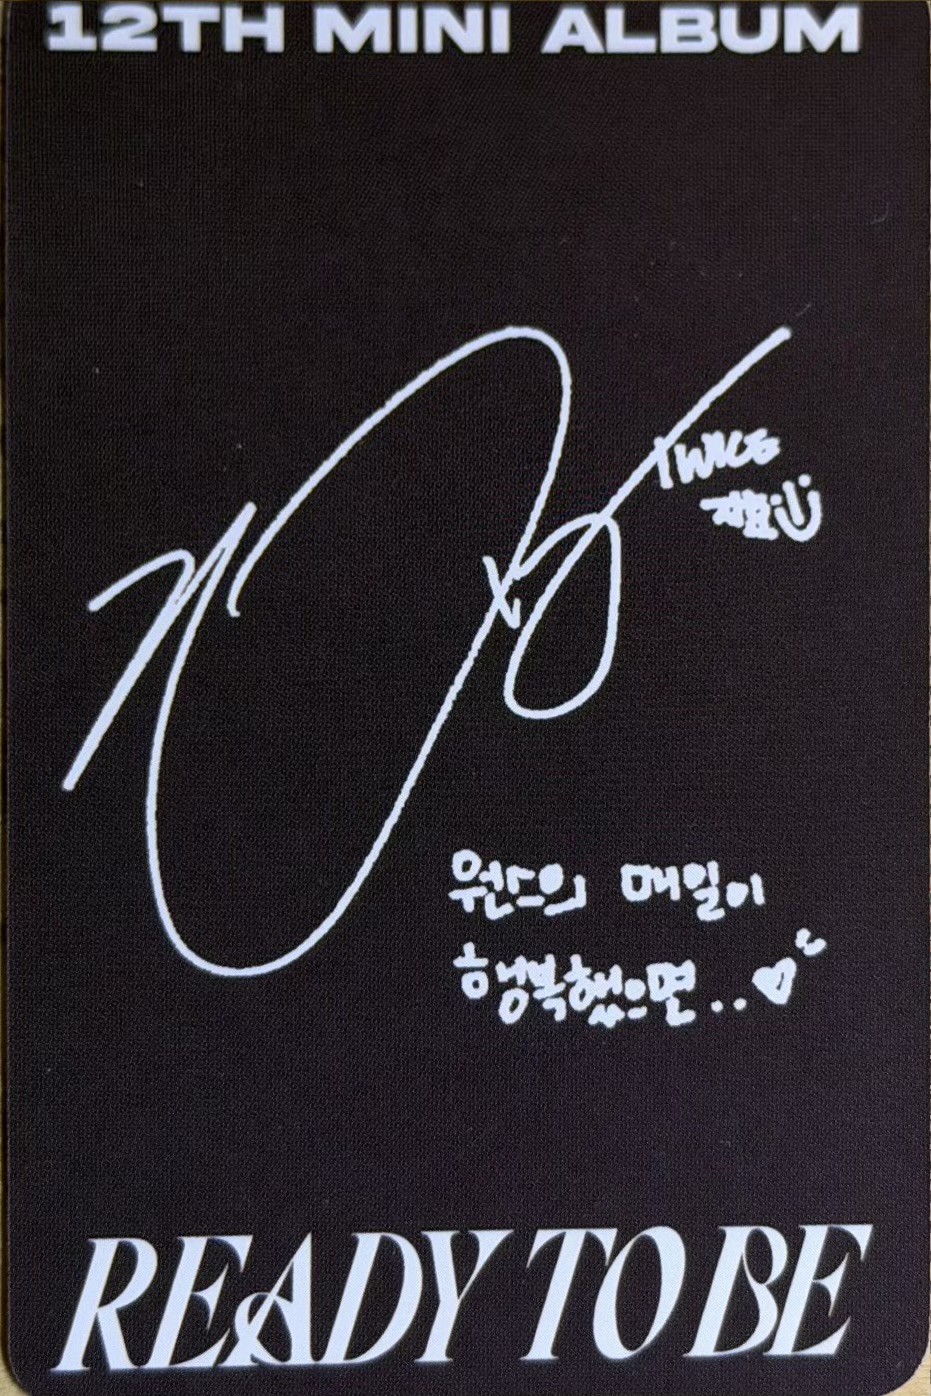 12TH MINI ALBUM
TWICE
지효
원스의 매일이
행복했으면..♡
READY TO BE